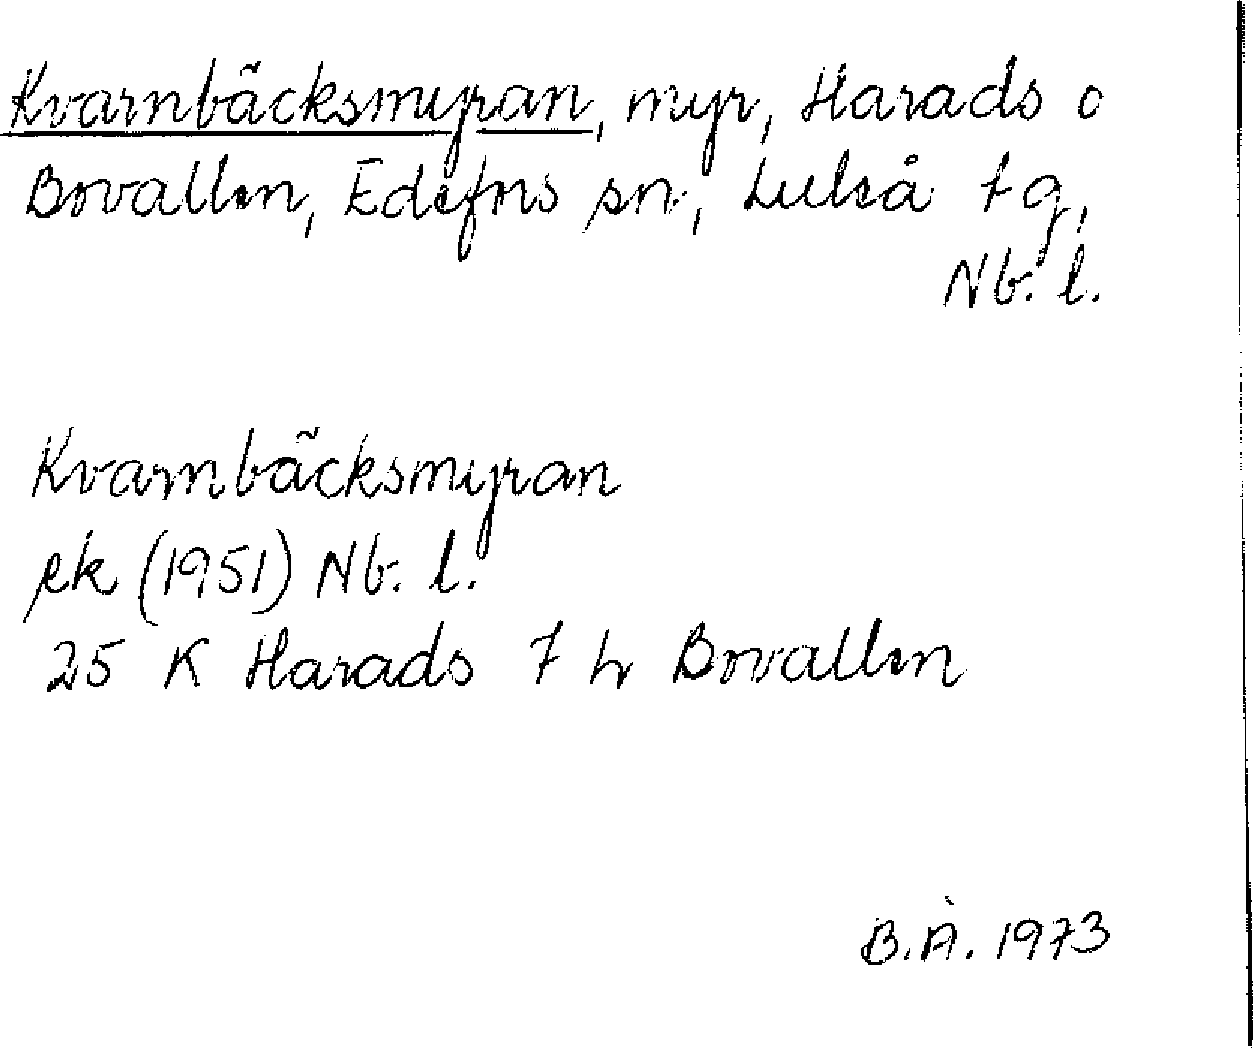 Kvarnbäcksmyran, myr, Harads o
Bovallen, Edefors sn, Luleå tg,
Nb. l.
Kvarnbäcksmyran
ek (1951) Nb. l.
25 K Harads 7 h Bovallen
B.Å. 1973